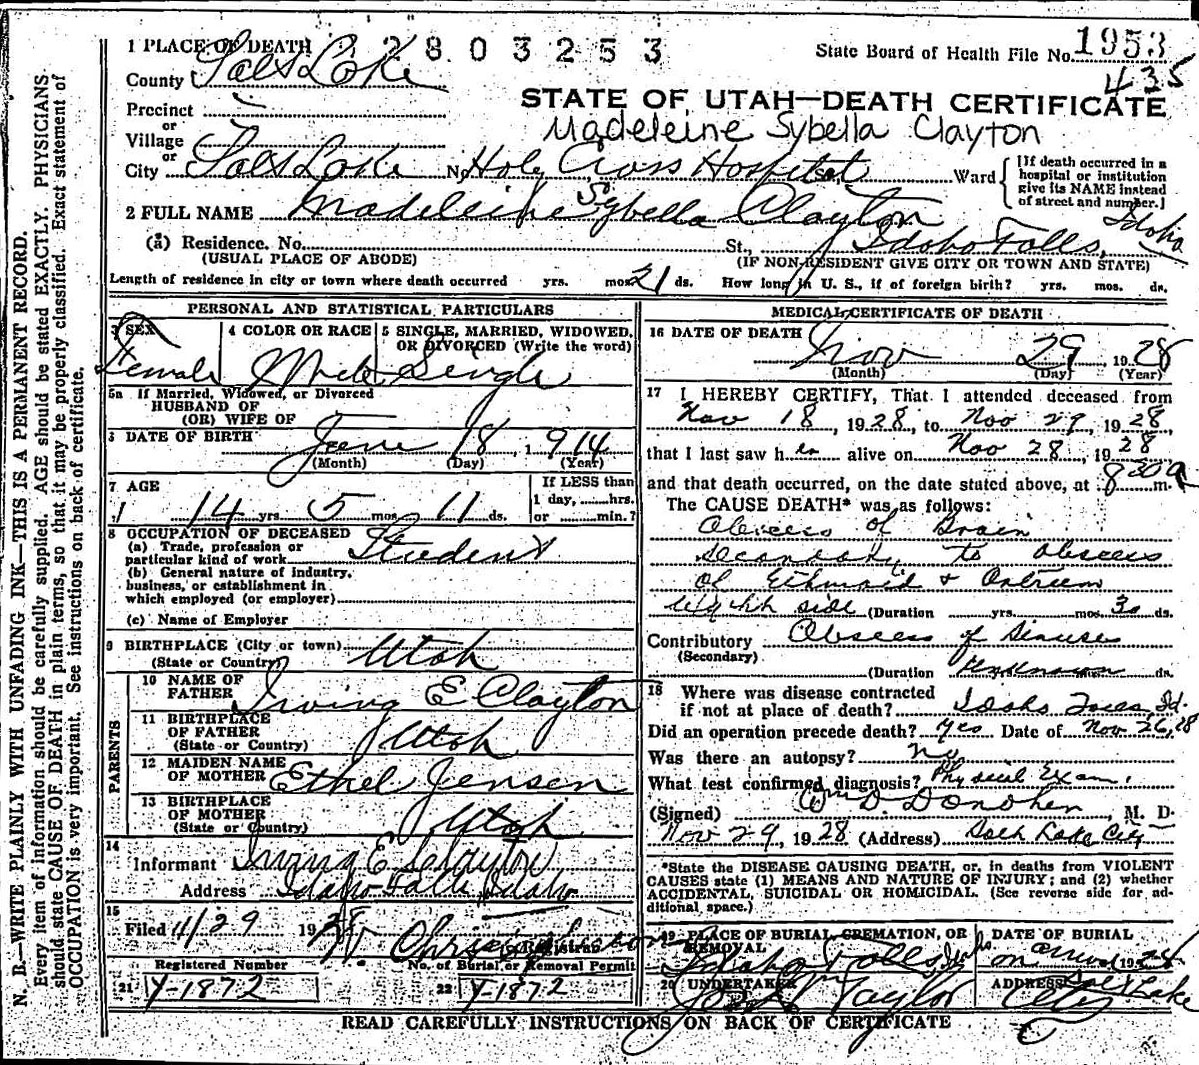 1 PLACE OF DEATH
2803253
State Board of Health File No. 1953
435
County Salt Lake
STATE OF UTAH—DEATH CERTIFICATE
Precinct
or
Village
Madeleine Sybella Clayton
or
City Salt Lake No. Holy Cross Hospital St., Ward
[If death occurred in a hospital or institution give its NAME instead of street and number.]
2 FULL NAME Madeleine Sybella Clayton
(a) Residence. No. St., Idaho Falls, Idaho
(USUAL PLACE OF ABODE) (IF NON-RESIDENT GIVE CITY OR TOWN AND STATE)
Length of residence in city or town where death occurred yrs. mos. 21 ds. How long in U. S., if of foreign birth? yrs. mos. ds.
PERSONAL AND STATISTICAL PARTICULARS
3 SEX
Female
4 COLOR OR RACE
White
5 SINGLE, MARRIED, WIDOWED, OR DIVORCED (Write the word)
Single
5a If Married, Widowed, or Divorced
HUSBAND OF
(OR) WIFE OF
6 DATE OF BIRTH June 18, 1914
(Month) (Day) (Year)
7 AGE
14 yrs. 5 mos. 11 ds.
If LESS than
1 day, hrs.
or min.?
8 OCCUPATION OF DECEASED
(a) Trade, profession or
particular kind of work Student
(b) General nature of industry,
business, or establishment in
which employed (or employer)
(c) Name of Employer
9 BIRTHPLACE (City or town)
(State or Country) Utah
PARENTS
10 NAME OF
FATHER Irving E Clayton
11 BIRTHPLACE
OF FATHER
(State or Country) Utah
12 MAIDEN NAME
OF MOTHER Ethel Jensen
13 BIRTHPLACE
OF MOTHER
(State or Country) Utah
14
Informant Irving E Clayton
Address Idaho Falls, Idaho
15
Filed 11/29 1928
Registrar
Registered Number No. of Burial or Removal Permit
21 Y-1872 22 Y-1872
MEDICAL CERTIFICATE OF DEATH
16 DATE OF DEATH
Nov 29, 1928
(Month) (Day) (Year)
17 I HEREBY CERTIFY, That I attended deceased from
Nov 18, 1928, to Nov 29, 1928
that I last saw her alive on Nov 28, 1928
and that death occurred, on the date stated above, at 8 30 a m.
The CAUSE DEATH* was as follows:
Abscess of Brain
secondary to abscess
of Ethmoid & Antrum
right side (Duration yrs. mos. 30 ds.
Contributory Abscess of Sinuses
(Secondary)
(Duration unknown ds.
18 Where was disease contracted
if not at place of death? Idaho Falls Id.
Did an operation precede death? Yes Date of Nov 26, 28
Was there an autopsy? No
What test confirmed diagnosis? Physical Exam.
(Signed) Wm D Donoher, M. D.
Nov 29, 1928 (Address) Salt Lake City
*State the DISEASE CAUSING DEATH, or, in deaths from VIOLENT
CAUSES state (1) MEANS AND NATURE OF INJURY; and (2) whether
ACCIDENTAL, SUICIDAL OR HOMICIDAL. (See reverse side for ad-
ditional space.)
19 PLACE OF BURIAL, CREMATION, OR
REMOVAL
Idaho Falls
DATE OF BURIAL
on arrival
20 UNDERTAKER
Taylor
ADDRESS
Salt Lake City
READ CAREFULLY INSTRUCTIONS ON BACK OF CERTIFICATE
N. B.—WRITE PLAINLY WITH UNFADING INK—THIS IS A PERMANENT RECORD.
Every item of information should be carefully supplied. AGE should be stated EXACTLY. PHYSICIANS
should state CAUSE OF DEATH in plain terms, so that it may be properly classified. Exact statement of
OCCUPATION is very important. See instructions on back of certificate.